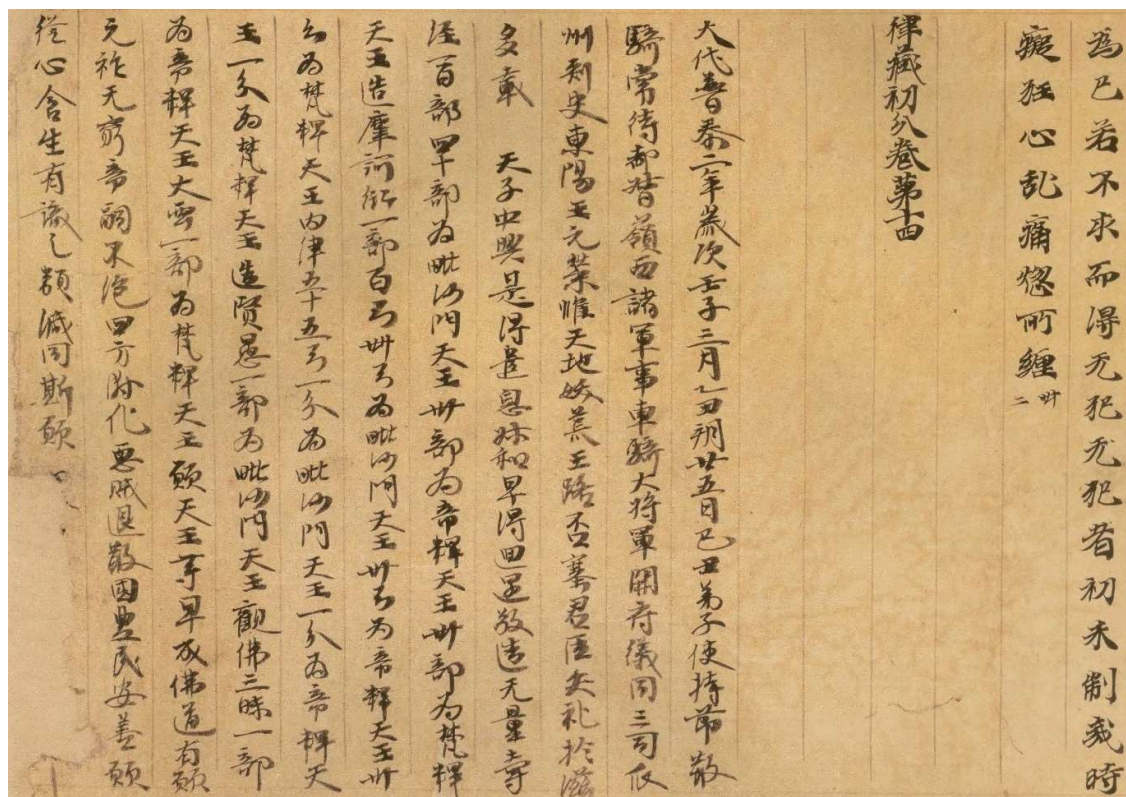 為已若不求而得无犯无犯者初未制戒時
癡狂心乱痛惱所纏 卌二
律藏初分卷第十四
大代普泰二年歲次壬子三月乙丑朔廿五日己丑弟子使持節散
騎常侍都督嶺西諸軍事車騎大將軍開府儀同三司瓜
州刺史東陽王元榮惟天地妖荒王路否塞君臣失礼於茲
多載 天子中興是得遣息叔和早得回還敬造无量壽
經百部卌部為毗沙門天王卅部為帝釋天王卅部為梵釋
天王造摩訶衍一部百弓卌弓為毗沙門天王卅弓為帝釋天王卅
弓為梵釋天王內律五十五弓一分為毗沙門天王一分為帝釋天
王一分為梵釋天王造賢愚一部為毗沙門天王觀佛三昧一部
為帝釋天王大雲一部為梵釋天王願天王等早成佛道有願
元祚无窮帝嗣不絕四方附化惡賊退散國豊民安善願
從心含生有識之類咸同斯願